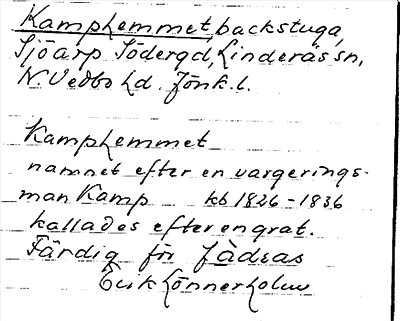 Kamphemmet, backstuga,
Sjöarp Södergd, Linderås sn,
N. Vedbo hd. Jönk. l.
Kamphemmet
namnet efter en vargerings-
man Kamp kb 1826-1836
kallades efter en grat.
Färdig för
Erik Lönnerholm